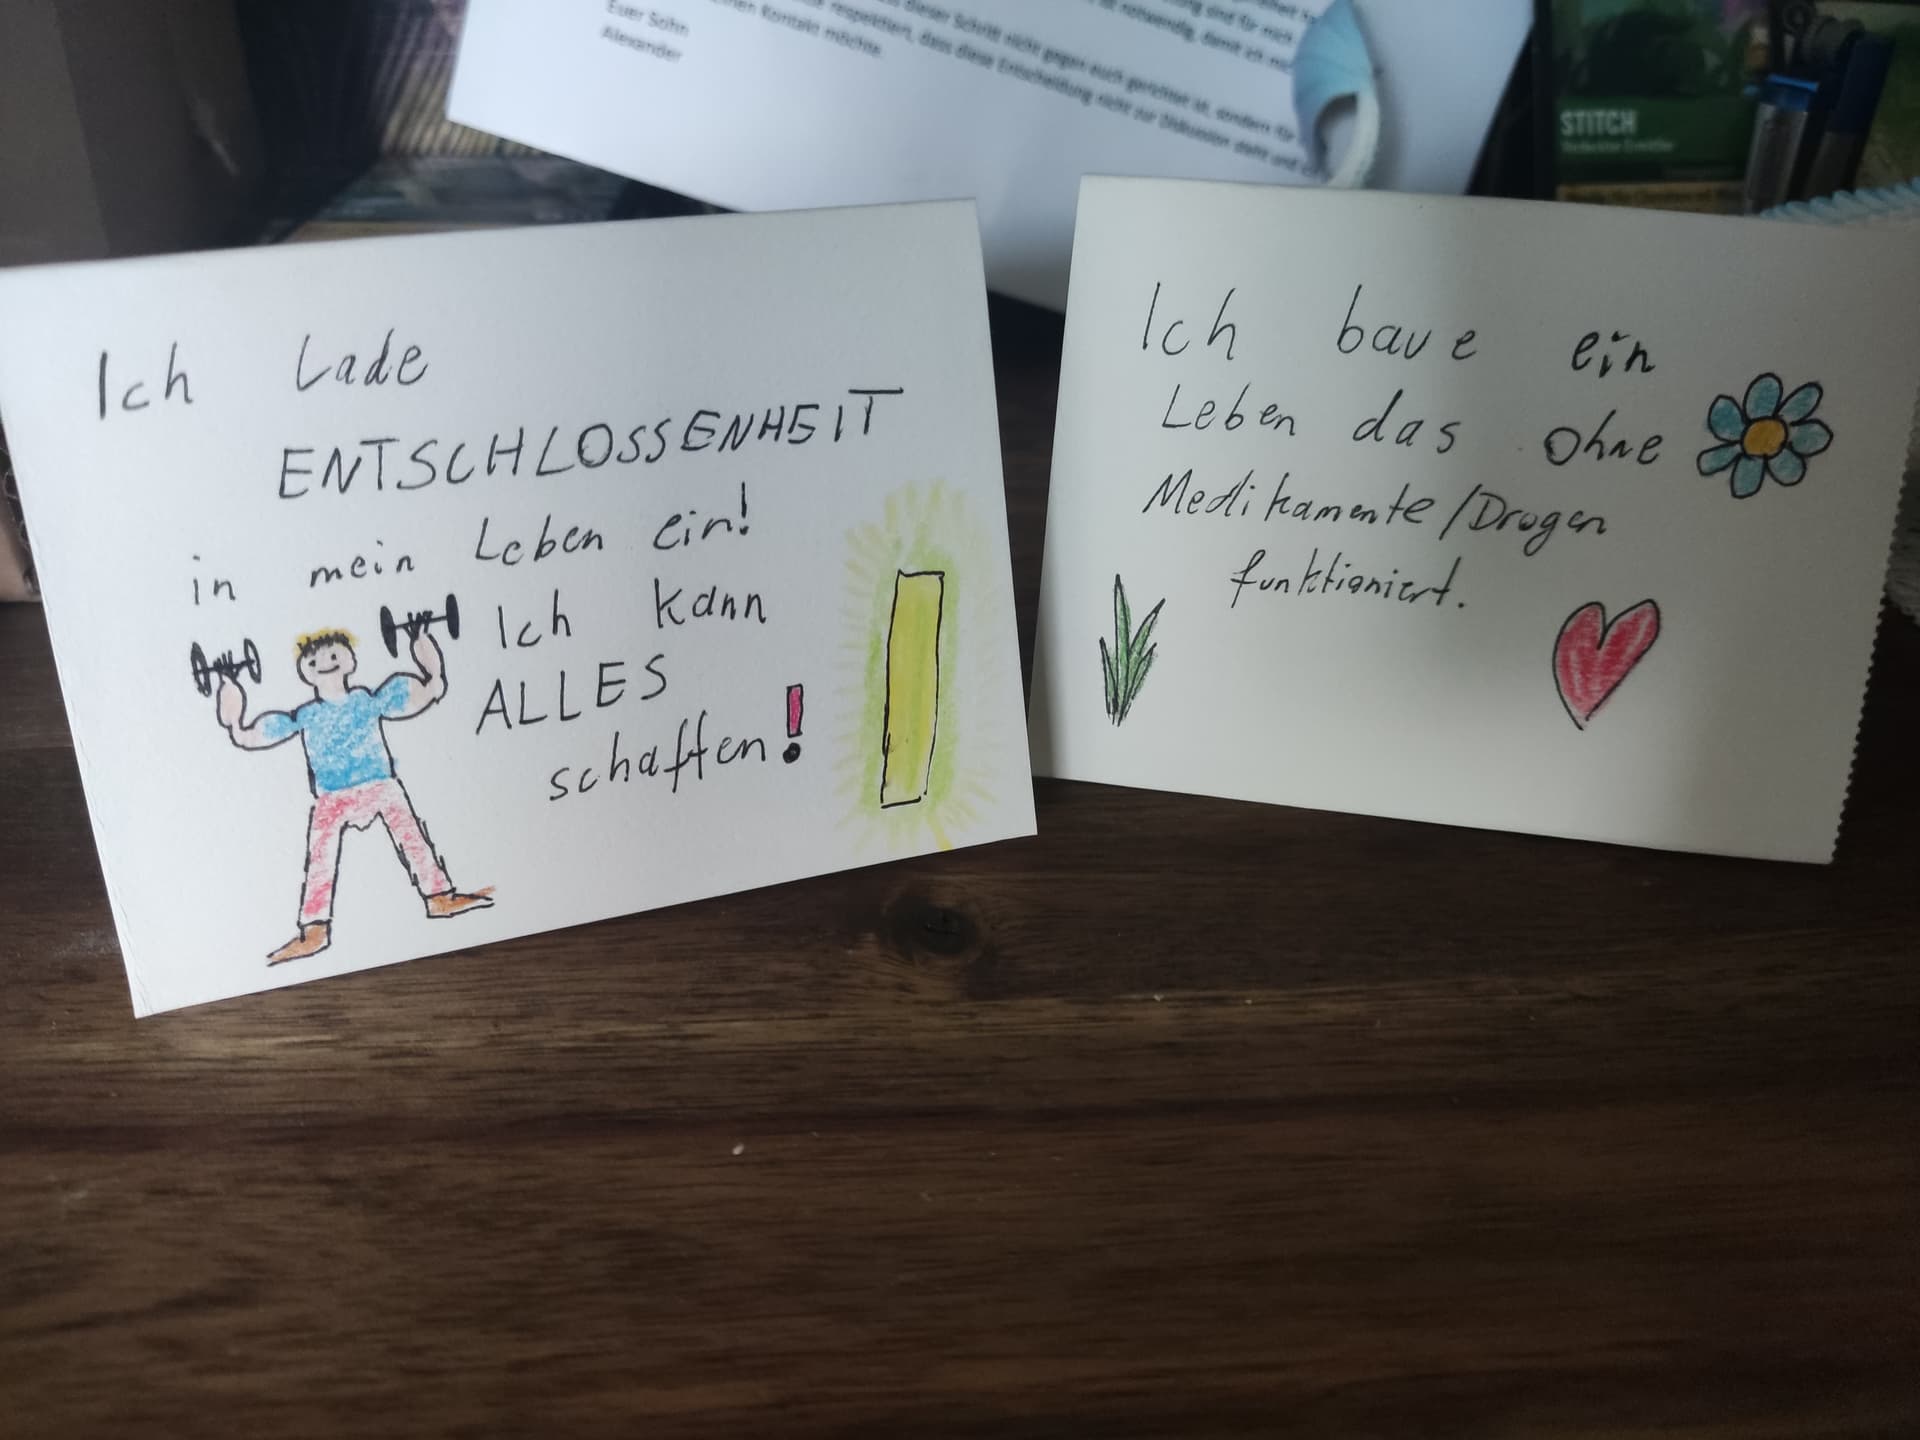 Euer Sohn
Alexander
dieser Schritt nicht gegen euch gerichtet ist, sondern für
respektieren, dass diese Entscheidung nicht zur Diskussion steht und
Kontakt möchte.
notwendig, damit ich
sind für mich
STITCH
Ich lade
ENTSCHLOSSENHEIT
in mein Leben ein!
Ich kann
ALLES
schaffen!
Ich baue ein
Leben das ohne
Medikamente/Drogen
funktioniert.